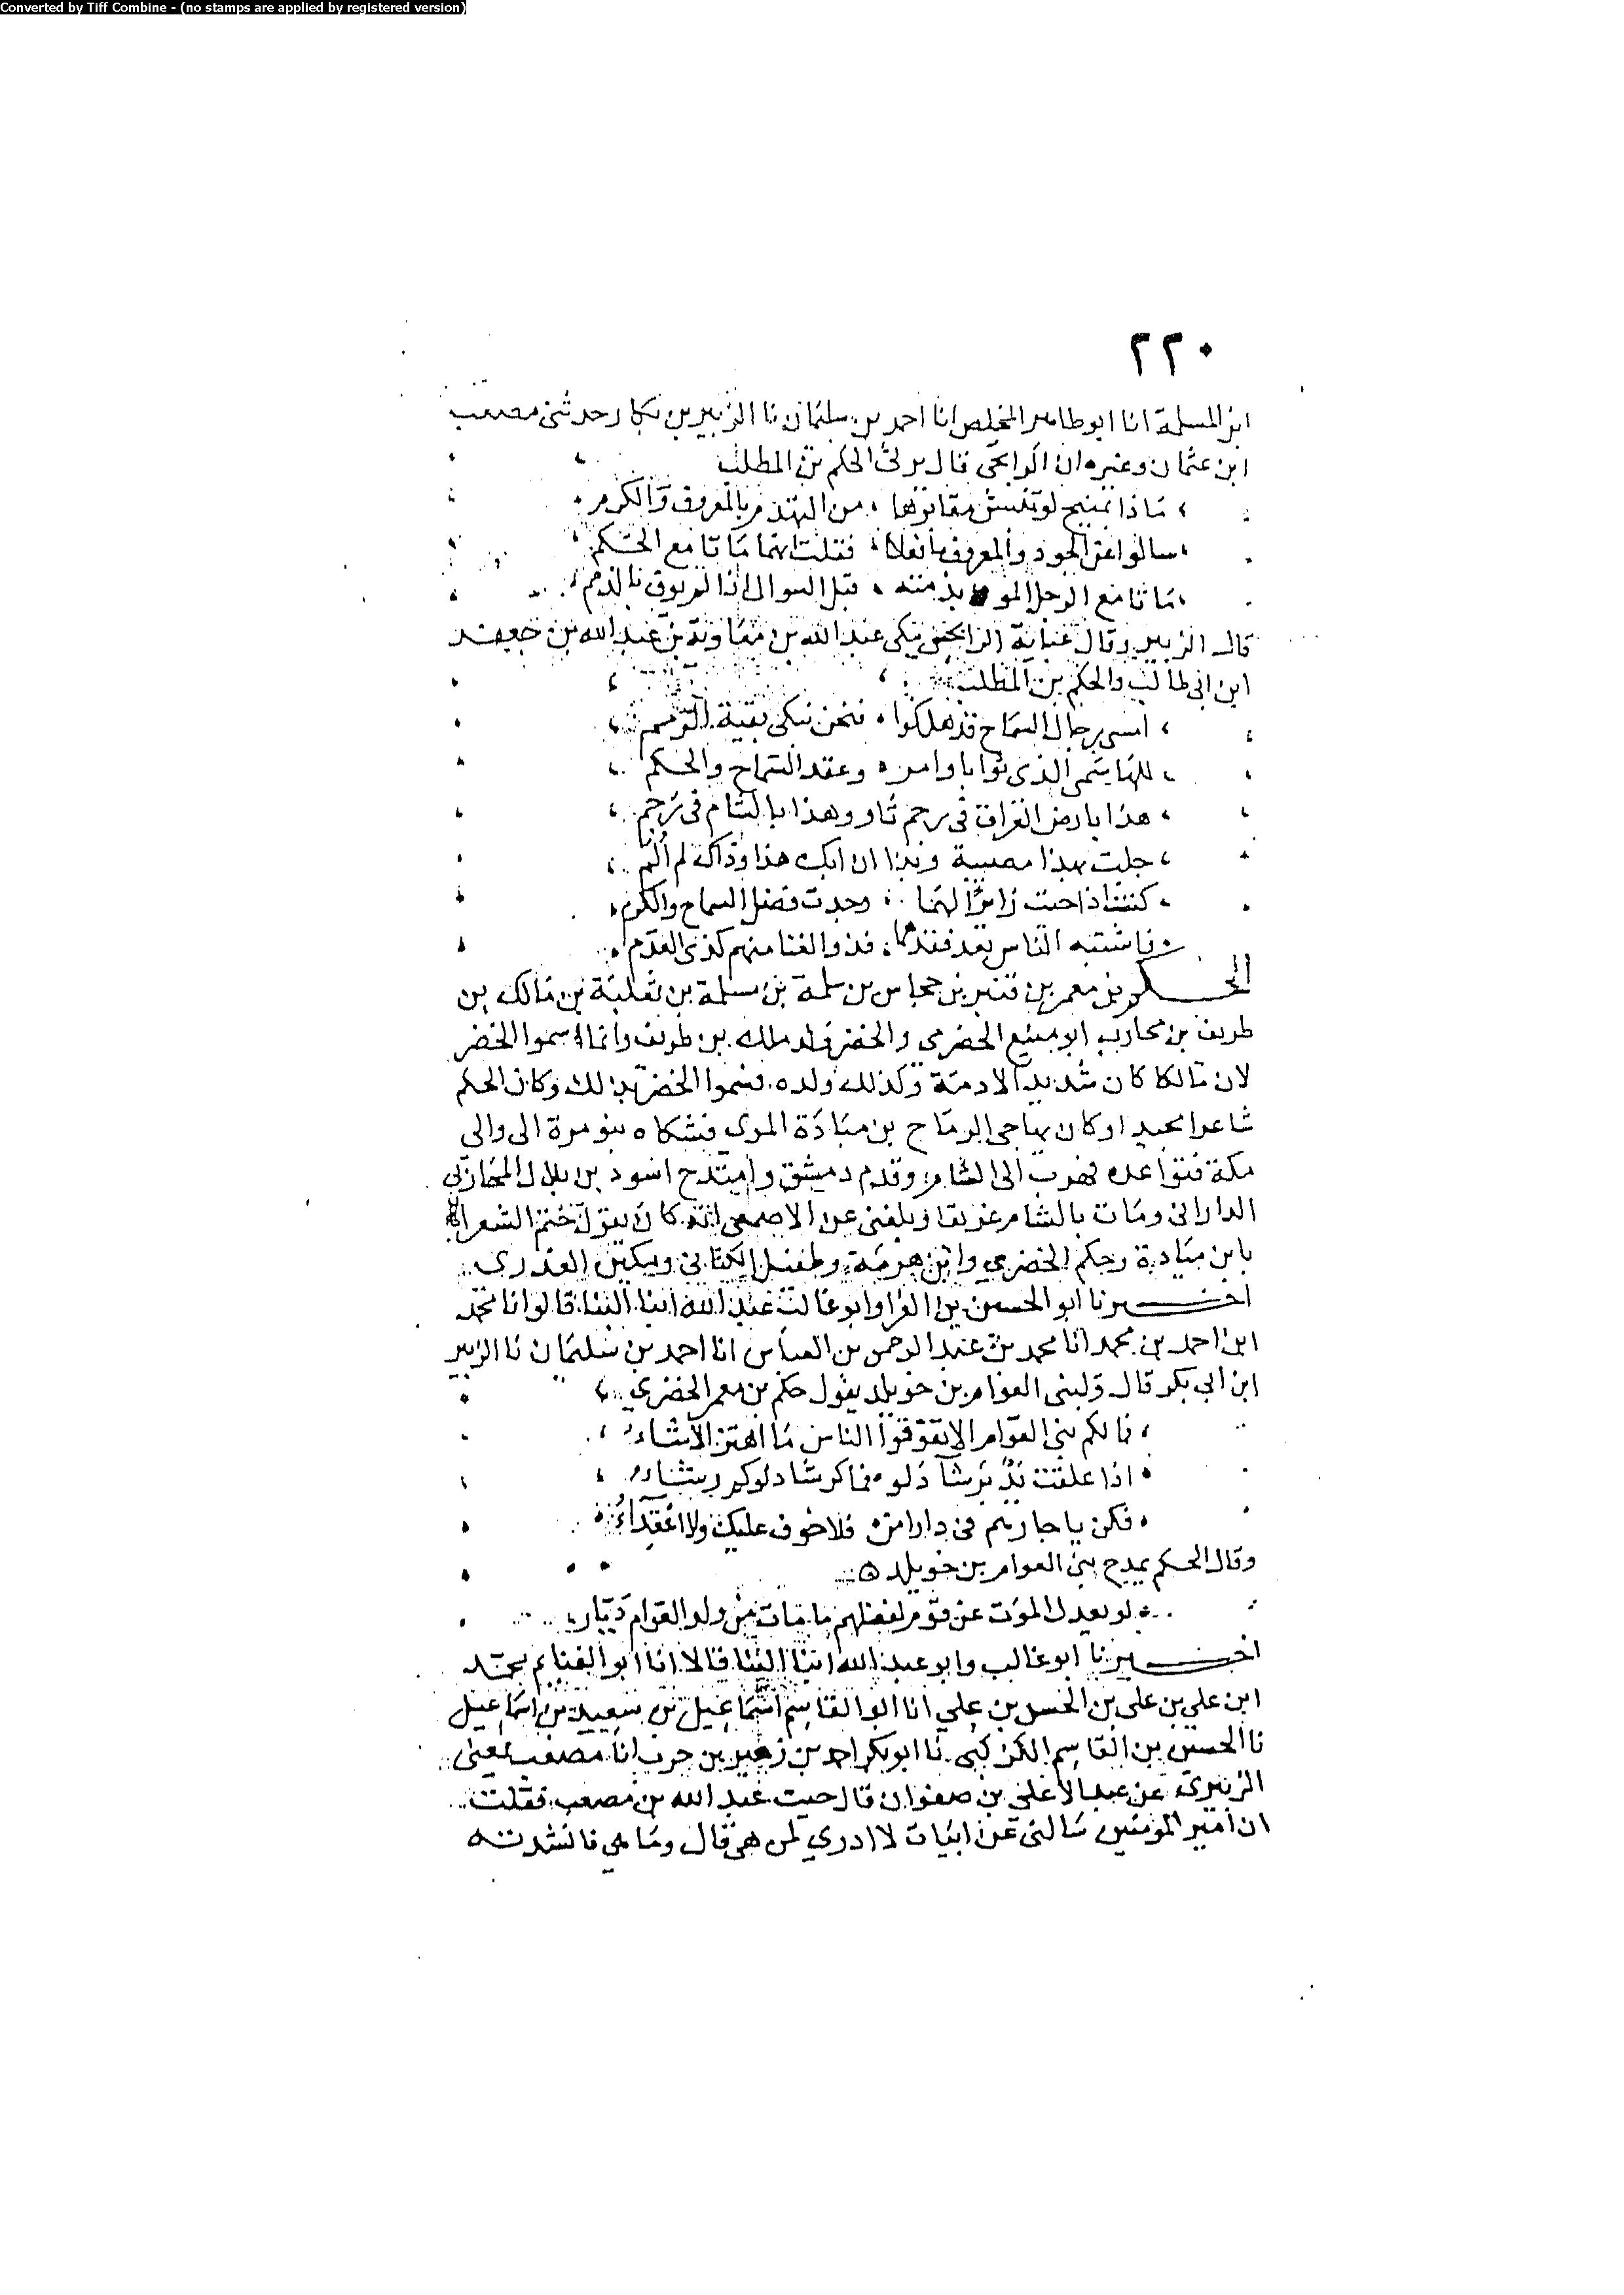 Converted by Tiff Combine - (no stamps are applied by registered version)
٢٢٠
ابن المسلمة انا ابو طاهر المخلص انا احمد بن سليمان نا الزبير بن بكار حدثني مصعب
ابن عثمان وغيره ان الراتجي قال يرثي الحكم بن المطلب
ماذا بمنبج لو تنبش مقابرها من التهدم بالمعروف والكرم
سالوا عن الجود والمعروف ما فعلا فقلت انهما ماتا مع الحكم
ماتا مع الرجل الموفي بذمته قبل السوال اذا لم يوف بالذمم
قال الزبير وقال الراتجي يبكي عبد الله بن معاوية بن عبد الله بن جعفر
ابن ابي طالب والحكم بن المطلب
امسى رجال السماح قد هلكوا فنحن نبكي بقية الرمم
الذي ثوا وعقد السماح والحكم
هذا بارض العراق في رجم ثاو وهذا بالشام في رجم
جلت بهذا مصيبة وبذا ان ابك هذا وذاك لم الم
كنت اذا جيت زائرا لهما وجدت فضل السماح والكرم
فاشتبه الناس بعد فقدهما فذو الغنا منهم كذي العدم
الحكم بن معمر بن قنبر بن جحاس بن سلمة بن مسلمة بن ثعلبة بن مالك بن
طريف بن محارب ابو منيع الخضري والخضر ولد ملك بن طريف وانما سموا الخضر
لان مالكا كان شديد الادمة وكذلك ولده فسموا الخضر بذلك وكان الحكم
شاعرا مجيدا وكان يهاجي الرماح بن ميادة المري فشكاه بنو مرة الى والي
مكة فتواعده فهرب الى الشام وقدم دمشق وامتدح اسود بن بلال المحاربي
الداراني ومات بالشام غريقا وبلغني عن الاصمعي انه كان يقول ختم الشعرا
بابن ميادة وحكم الخضري وابن هرمة وطفيل الكناني ومكين العذري
اخبرنا ابو الحسين بن الفرا وابو غالب وعبد الله ابنا البنا قالوا انا محمد
ابن احمد بن محمد انا محمد بن عبد الرحمن بن العباس انا احمد بن سليمان نا الزبير
ابن ابي بكر قال ولبني العوام بن خويلد يقول حكم بن معمر الخضري
مالكم بني العوام الا تفوقوا الناس ما اهتز الاشاء
اذا علقت برشا دلو فما كرشا دلوكم رشاء
فكن يا جارهم في دار امن فلا خوف عليك ولا اعتداء
وقال الحكم يمدح بني العوام بن خويلد
لو يعدل الموت عن قوم لفضلهم ما مات من ولد العوام ديار
اخبرنا ابو غالب وابو عبد الله ابنا البنا قالا انا ابو الغنايم محمد
ابن علي بن علي بن الحسن بن علي انا ابو القاسم اسماعيل بن سعيد بن اسماعيل
نا الحسين بن القاسم الكوكبي نا ابو بكر احمد بن زهير بن حرب انا مصعب يعني
الزبيري عن عبد الاعلى بن صفوان قال جيت عبد الله بن مصعب فقلت
ان امير المومنين سالني عن ابيات لا ادري لمن هي قال وما هي فانشدته